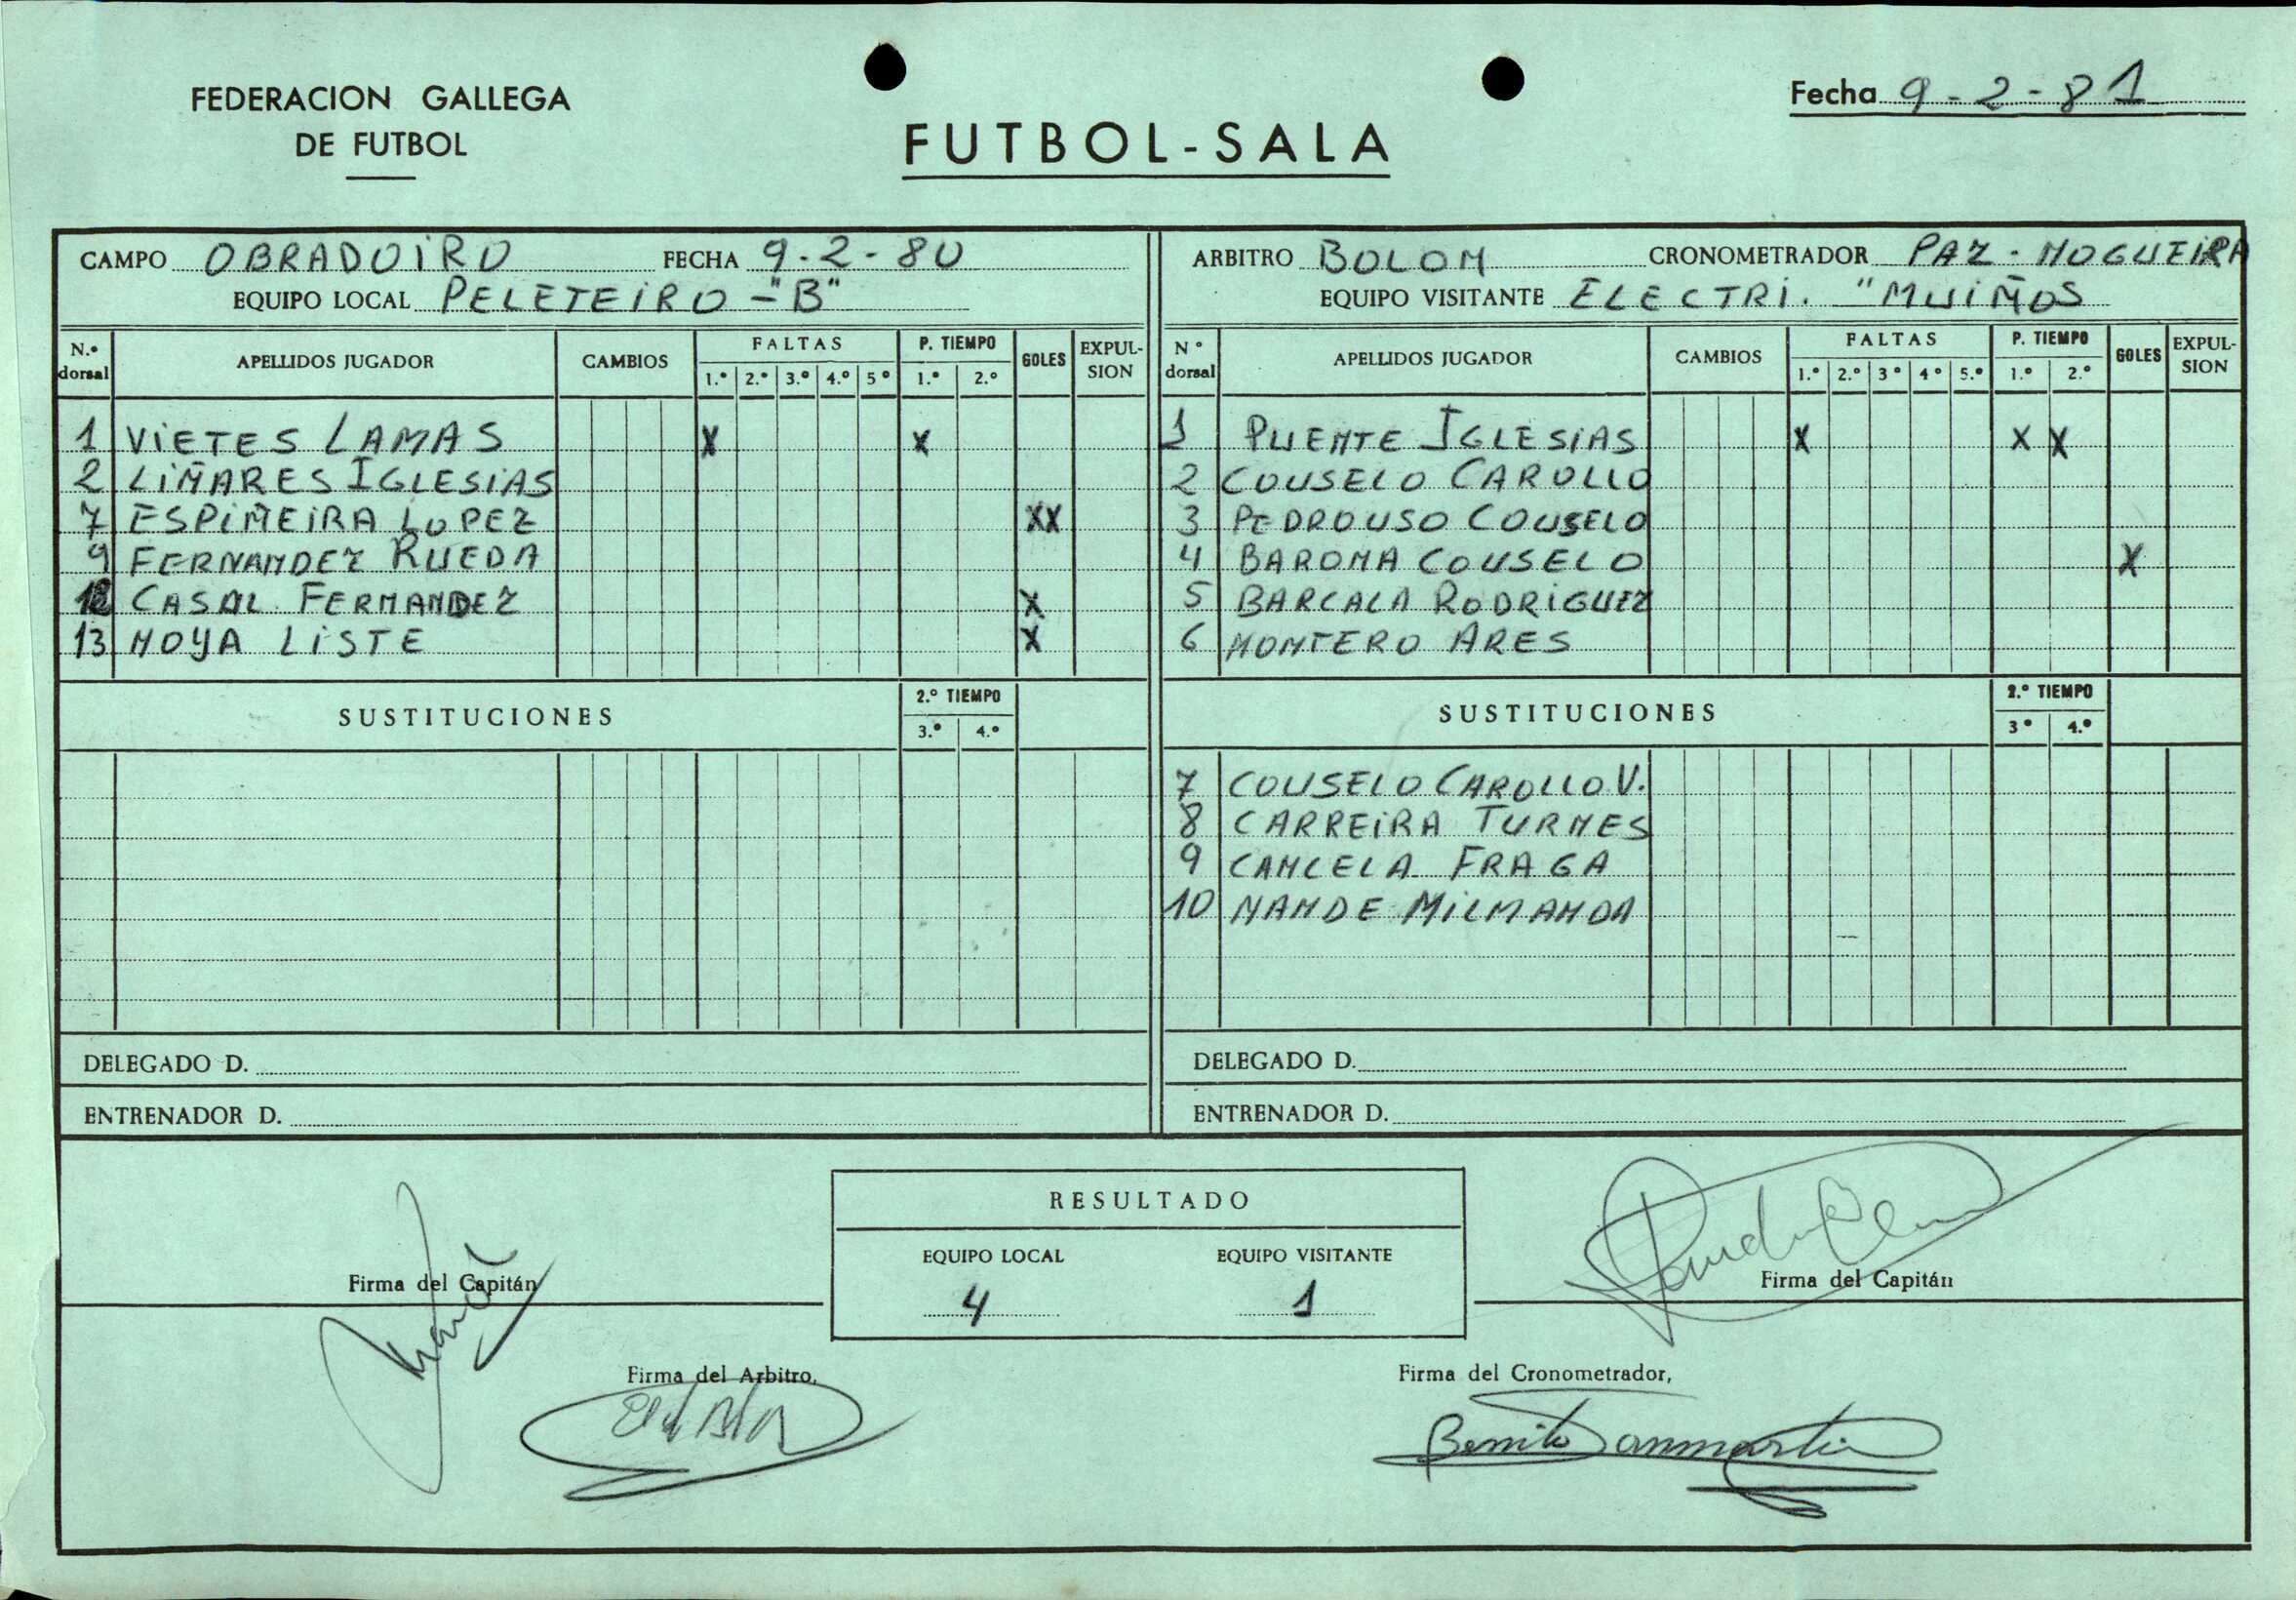 FEDERACION GALLEGA
DE FUTBOL
FUTBOL-SALA
Fecha 9-2-81
CAMPO OBRADOIRO FECHA 9-2-80
EQUIPO LOCAL PELETEIRO - "B"
N.º dorsal APELLIDOS JUGADOR CAMBIOS FALTAS 1.º 2.º 3.º 4.º 5º P. TIEMPO 1.º 2.º GOLES EXPUL-SION
1 VIETES LAMAS X X
2 LIÑARES IGLESIAS
7 ESPIÑEIRA LOPEZ XX
9 FERNANDEZ RUEDA
12 CASAL FERNANDEZ X
13 NOYA LISTE X
SUSTITUCIONES 2.º TIEMPO 3.º 4.º
DELEGADO D.
ENTRENADOR D.
ARBITRO BOLON CRONOMETRADOR PAZ - NOGUEIRA
EQUIPO VISITANTE ELECTRI. "MUIÑOS
Nº dorsal APELLIDOS JUGADOR CAMBIOS FALTAS 1.º 2.º 3º 4º 5.º P. TIEMPO 1.º 2.º GOLES EXPUL-SION
1 PUENTE IGLESIAS X X X
2 COUSELO CAROLLO
3 PEDROUSO COUSELO
4 BARONA COUSELO X
5 BARCALA RODRIGUEZ
6 MONTERO ARES
SUSTITUCIONES 2.º TIEMPO 3º 4.º
7 COUSELO CAROLLO V.
8 CARREIRA TURNES
9 CANCELA FRAGA
10 NANDE MILMANDA
DELEGADO D.
ENTRENADOR D.
RESULTADO
EQUIPO LOCAL EQUIPO VISITANTE
4 1
Firma del Capitán
Firma del Capitán
Firma del Arbitro,
Firma del Cronometrador,
Benito Sanmartin